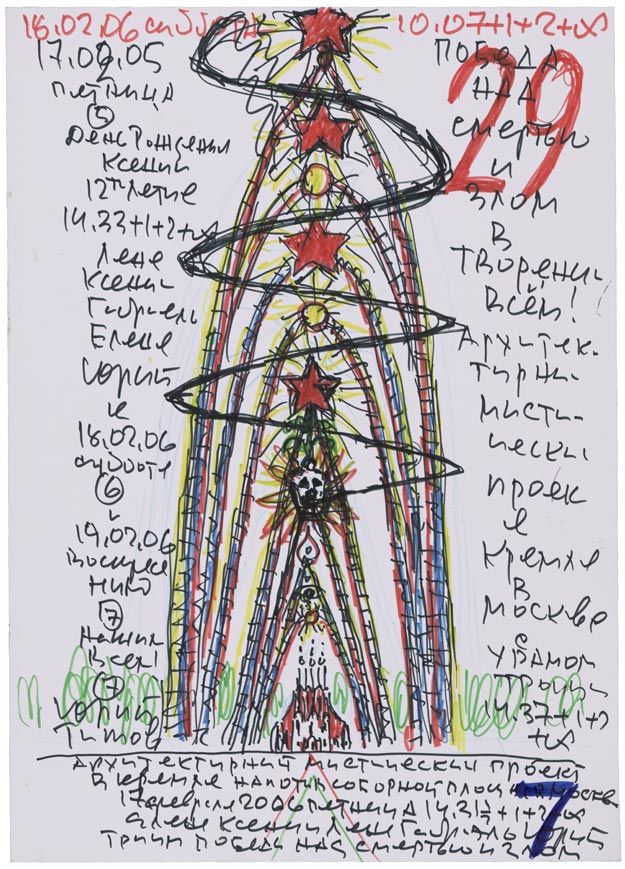 18.02.06 суббота 10.07+1+2+∞
17.02.05
пятница
5
День Рождения
Ксении
12ти летие
14.33+1+2+∞
Лене
Ксении
Габриель
Елене
Юрий
и
18.02.06
суббота
6
и
19.02.06
Воскресе
ние
7
нашим
Всем!
Юрий
Титов
29
ПОБЕДА
НАД
смертью
и
Злом
в
Творении
Всем!
Архитек-
турни-
мисти-
чески
проек
Кремля
в
Москве
с
Храмом
Троицы
14.37+1+2
+∞
Архитектурный мистический проект
в Кремле на Соборной площади Москве
17 февраля 2006 пятница 14.31+1+2+∞
7
Троицы Победа над смертью и злом